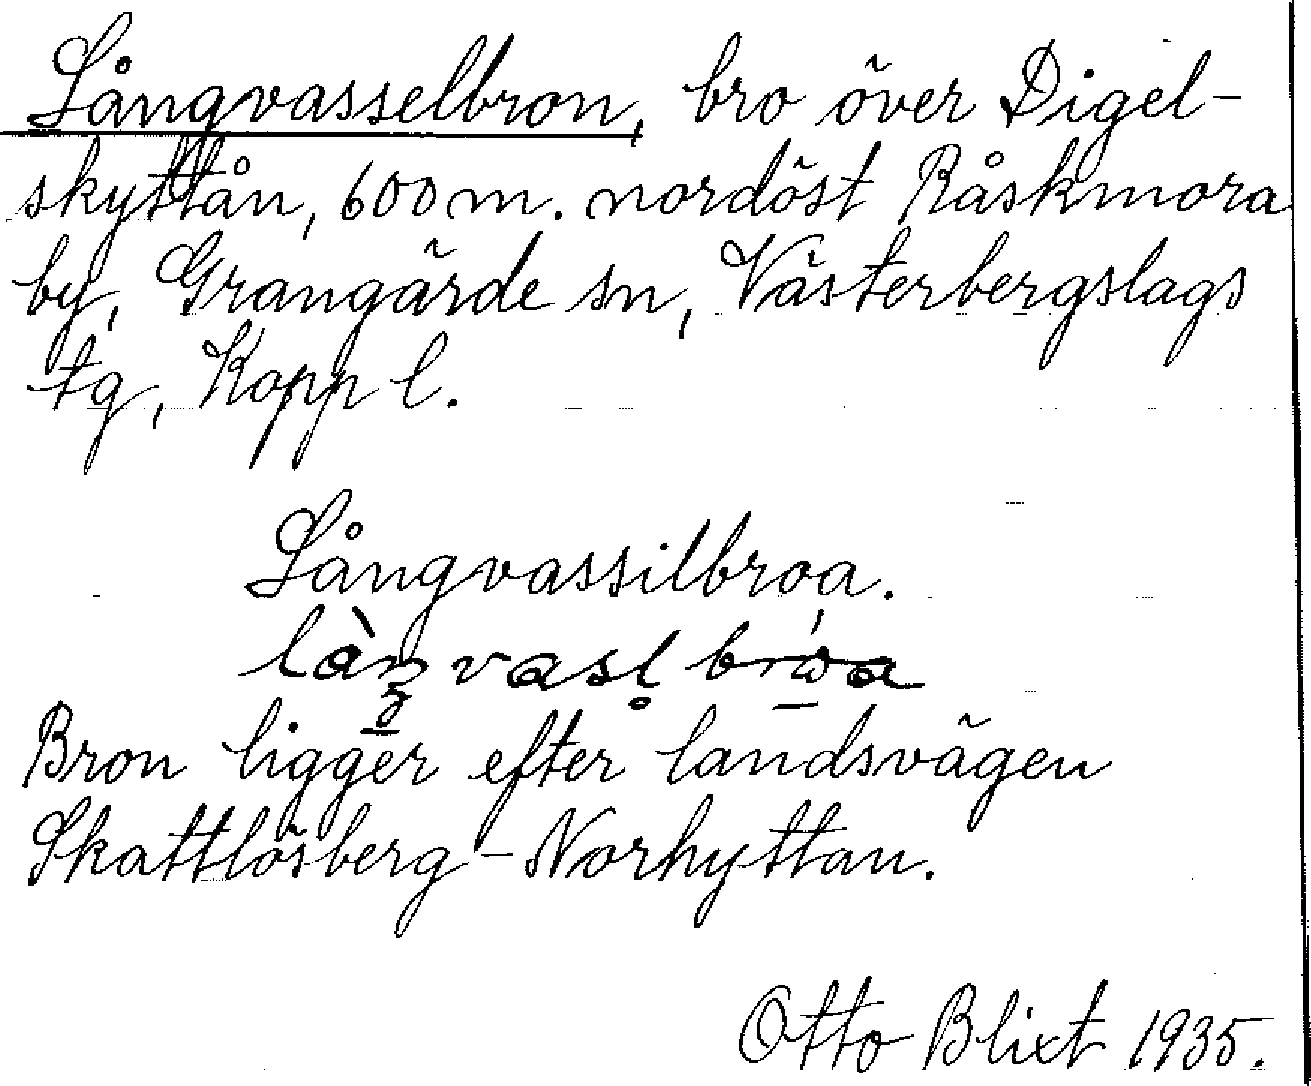 Långvasselbron, bro över Digel-
skyttån, 600 m. nordöst Råskmora
by, Grangärde sn, Västerbergslags
tg, Kopp l.
Långvassilbroa.
Bron ligger efter landsvägen
Skattlösberg - Norhyttan.
Otto Blixt 1935.